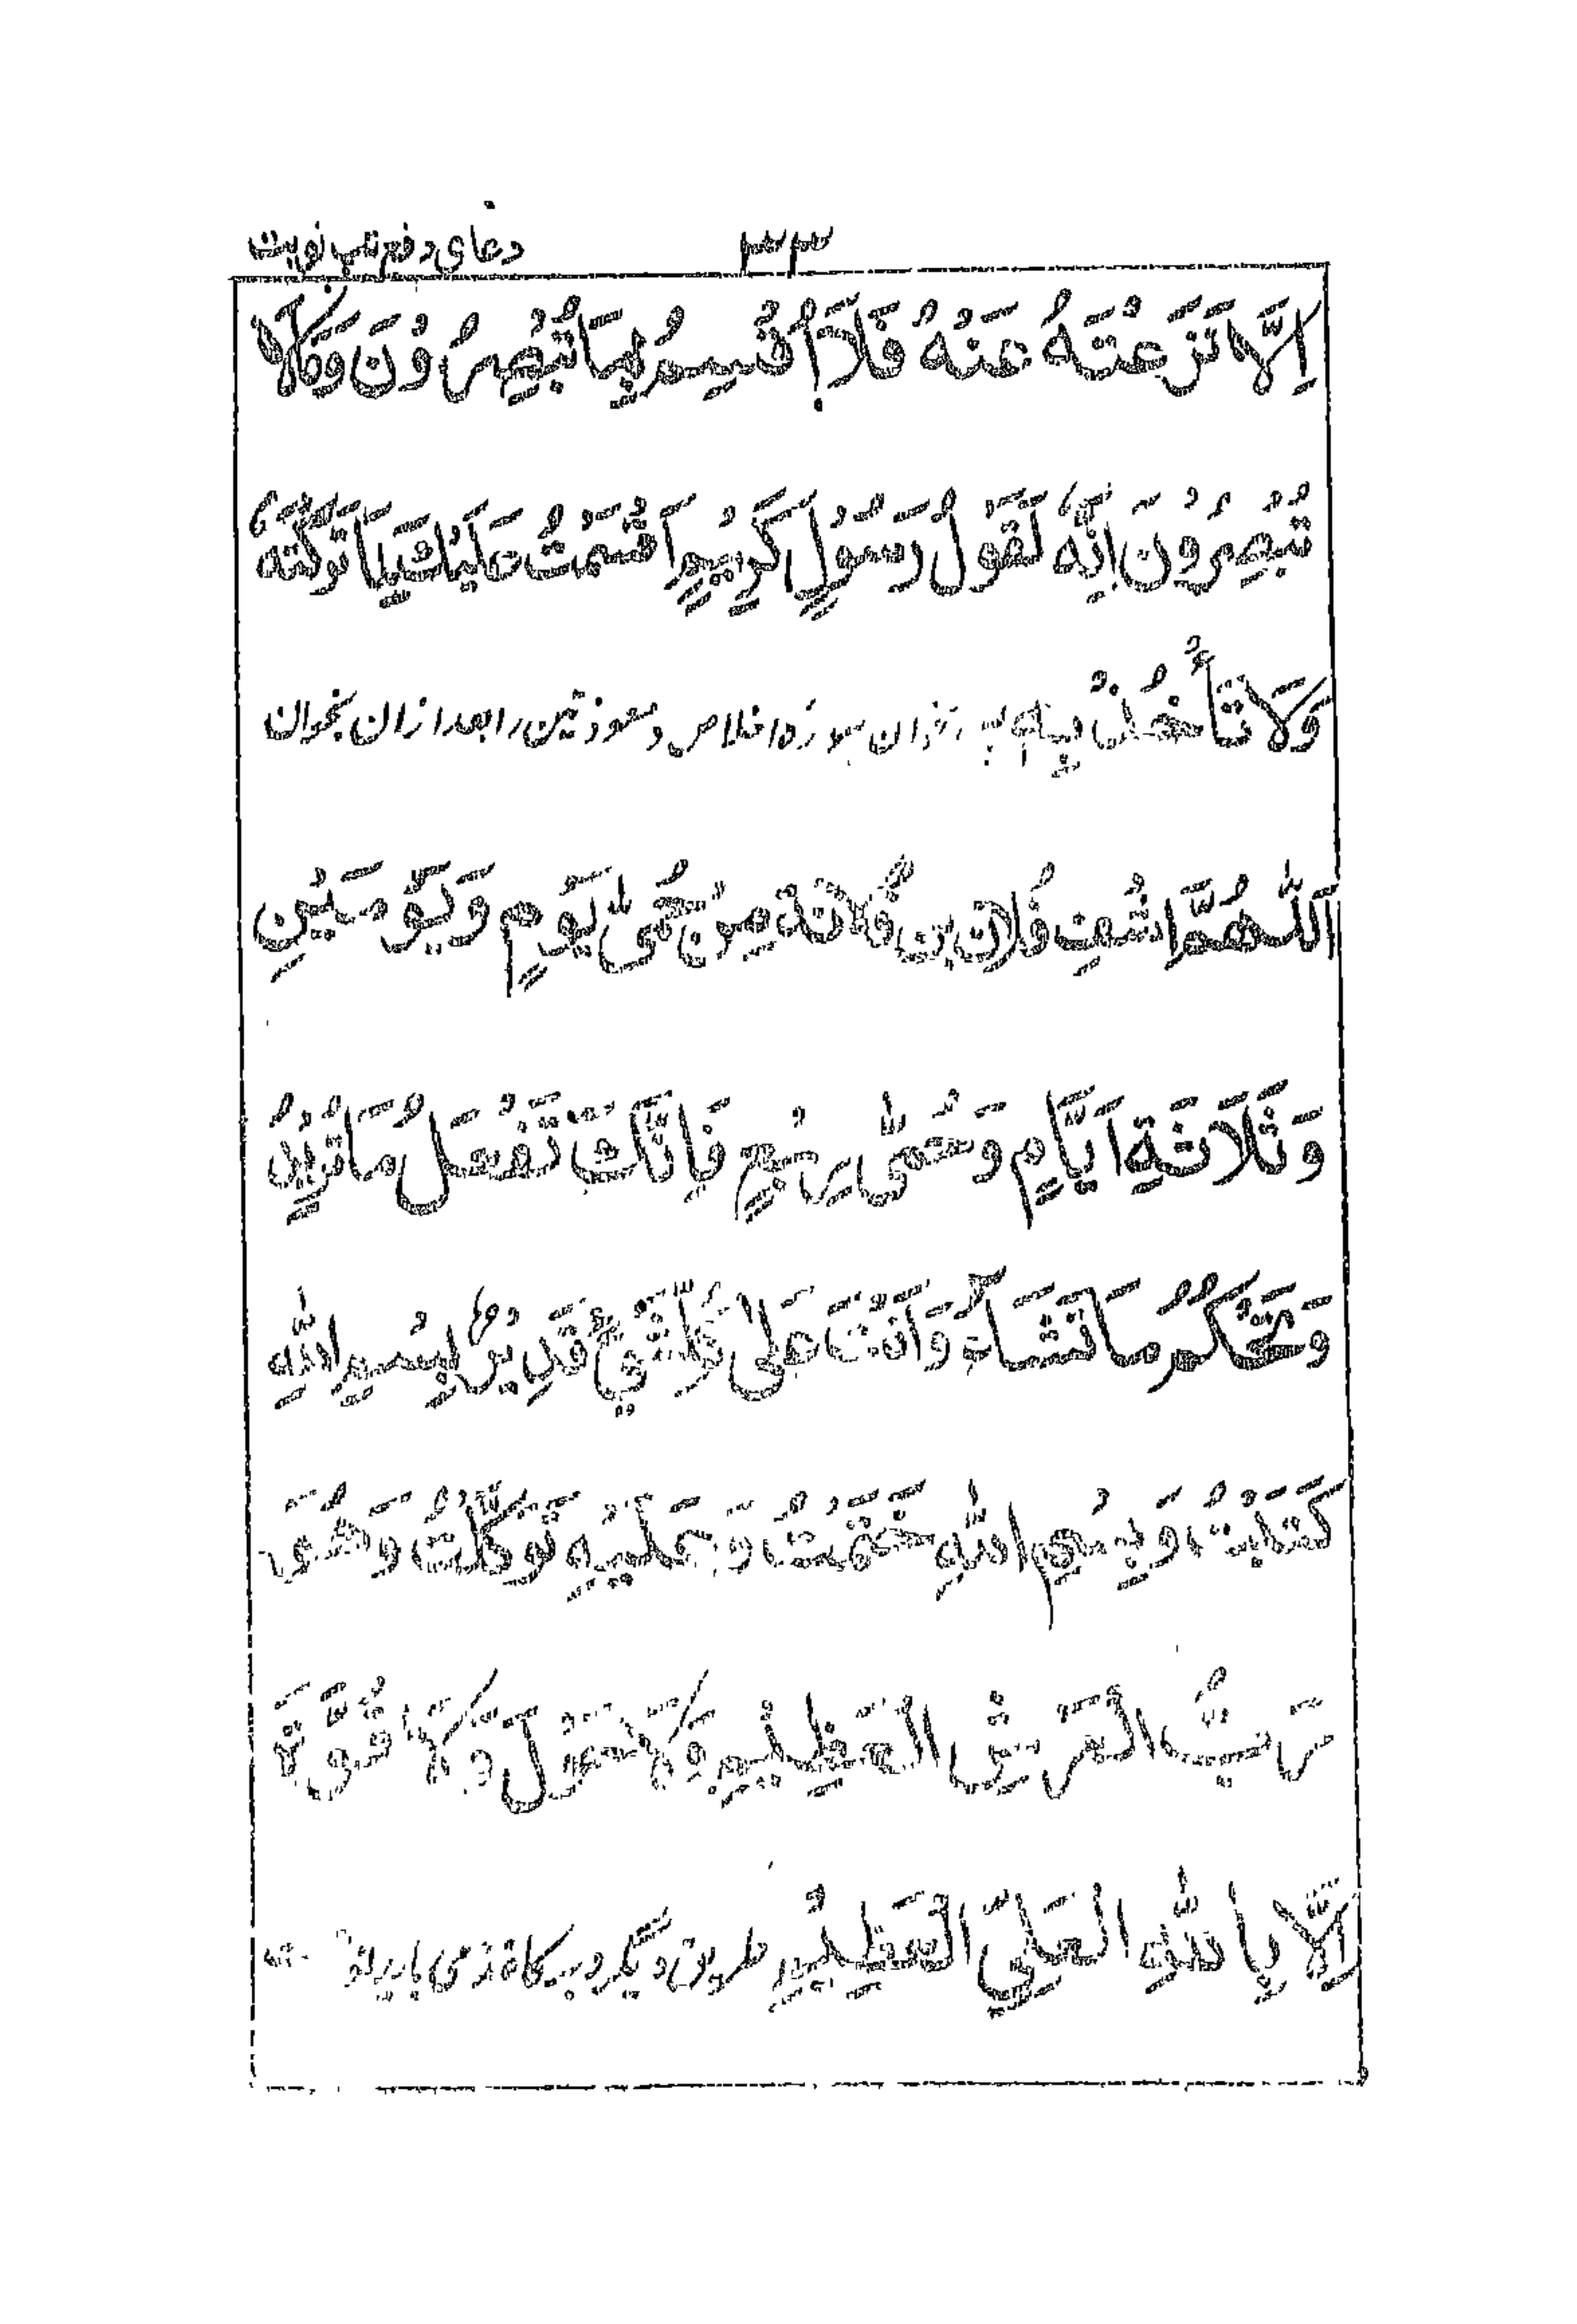 ۳۳ دعای دفع تب نوبت
اِلَّا مَا نَزَعْتَهُ عَنْهُ فَلَآ اُقْسِمُ بِمَا تُبْصِرُوْنَ وَمَالَا
تُبْصِرُوْنَ اِنَّهٗ لَقَوْلُ رَسُوْلٍ كَرِيْمٍ اَقْسَمْتُ عَلَيْكَ يَا تَرَكْتَهٗ
وَلَا تَأْخُذْ بِيَدِهٖ سورۀ اخلاص و معوذتین را بعد ازان بخوان
اَللّٰهُمَّ اشْفِ فُلَانِ بن فُلَانَة مِنْ حُمّٰى يَوْمٍ وَيَوْمَيْنِ
وَثَلَاثَةِ اَيَّامٍ وَحُمّٰى رِبْعٍ فَاِنَّكَ تَفْعَلُ مَا تُرِيْدُ
وَتَحْكُمُ مَا تَشَآءُ وَاَنْتَ عَلٰى كُلِّ شَيْءٍ قَدِيْرٌ بِسْمِ اللّٰهِ
كَتَبْتُ وَبِسْمِ اللّٰهِ خَتَمْتُ وَعَلَيْهِ تَوَكَّلْتُ وَهُوَ
رَبُّ الْعَرْشِ الْعَظِيْمِ وَلَا حَوْلَ وَلَا قُوَّةَ
اِلَّا بِاللّٰهِ الْعَلِيِّ الْعَظِيْمِ طریق دیگر